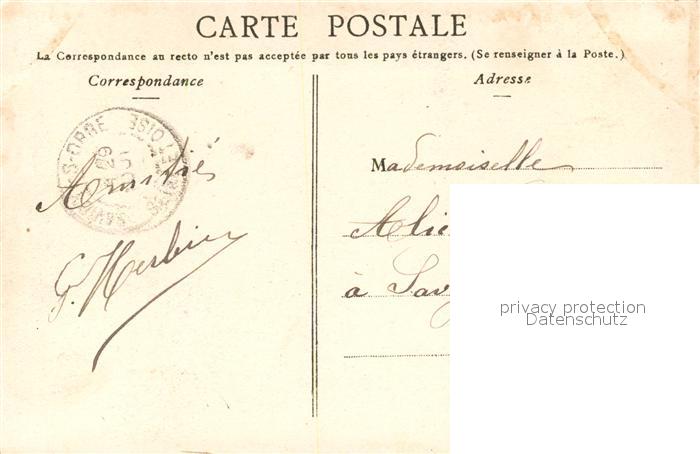 CARTE POSTALE
La Correspondance au recto n'est pas acceptée par tous les pays étrangers. (Se renseigner à la Poste.)
Correspondance
Adresse
Amitiés
G. Herbin
Mademoiselle
Alic
à Savig
privacy protection
Datenschutz